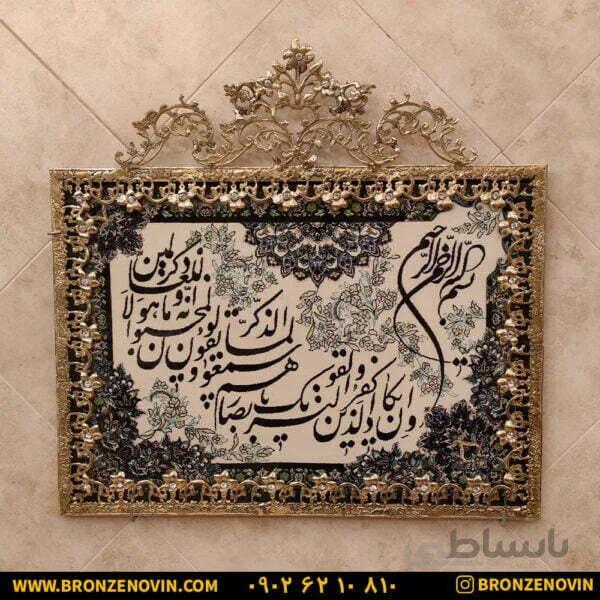 بسم الله الرحمن الرحیم
وان یکاد الذین کفروا لیزلقونک بابصارهم لما سمعوا الذکر
ویقولون انه لمجنون وما هو الا ذکر للعالمین
باساطی
WWW.BRONZENOVIN.COM
۰۹۰۲ ۶۲ ۱۰ ۸۱۰
BRONZENOVIN.COM